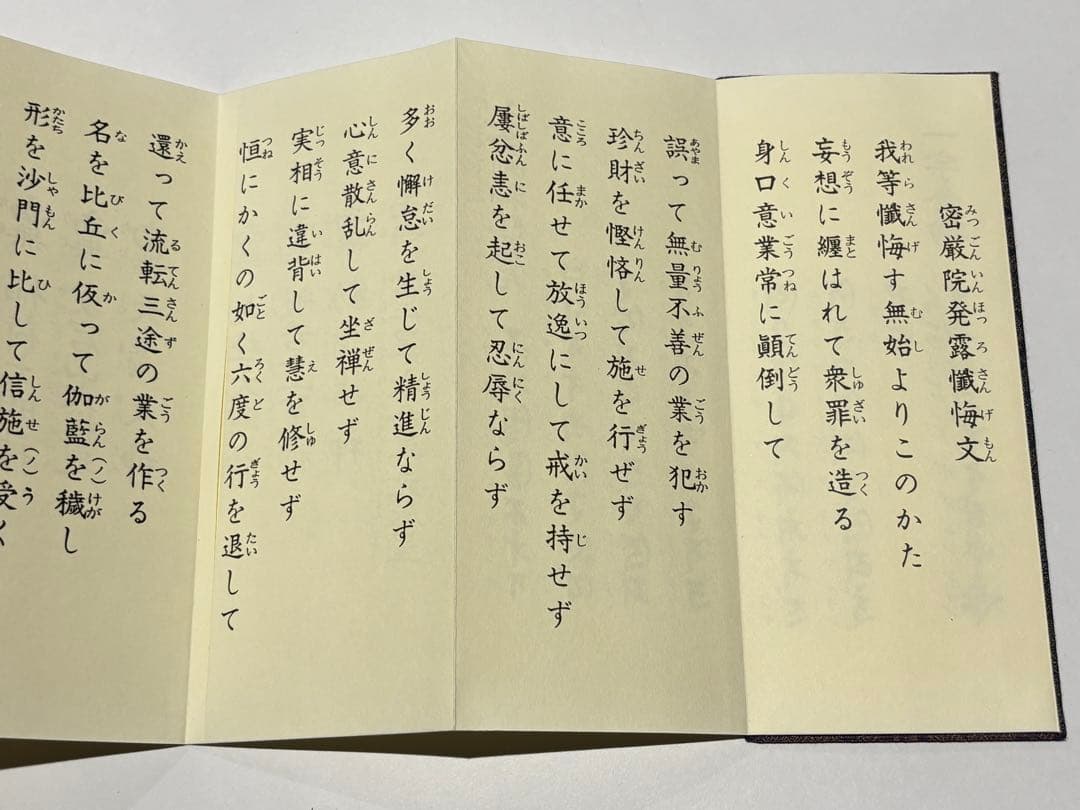 密厳院発露懺悔文
我等懺悔す無始よりこのかた
妄想に纏はれて衆罪を造る
身口意業常に顚倒して
誤って無量不善の業を犯す
珍財を慳悋して施を行ぜず
意に任せて放逸にして戒を持せず
屡忿恚を起して忍辱ならず
多く懈怠を生じて精進ならず
心意散乱して坐禅せず
実相に違背して慧を修せず
恒にかくの如く六度の行を退して
還って流転三途の業を作る
名を比丘に仮って伽藍を穢し
形を沙門に比して信施を受く